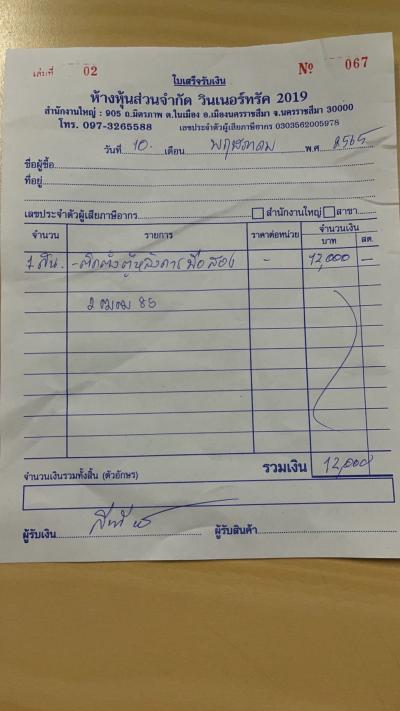 เล่มที่ 02 № 067
ใบเสร็จรับเงิน
ห้างหุ้นส่วนจำกัด วินเนอร์ทรัค 2019
สำนักงานใหญ่ : 905 ถ.มิตรภาพ ต.ในเมือง อ.เมืองนครราชสีมา จ.นครราชสีมา 30000
โทร. 097-3265588 เลขประจำตัวผู้เสียภาษีอากร 0303562005978
วันที่ 10 เดือน พฤษภาคม พ.ศ. 2565
ชื่อผู้ซื้อ
ที่อยู่
เลขประจำตัวผู้เสียภาษีอากร สำนักงานใหญ่ สาขา
จำนวน รายการ ราคาต่อหน่วย จำนวนเงิน
บาท สต.
1 - ติดตั้งตู้หลังคามือสอง - 12,000 -
85
รวมเงิน 12,000
จำนวนเงินรวมทั้งสิ้น (ตัวอักษร)
ผู้รับเงิน ผู้รับสินค้า